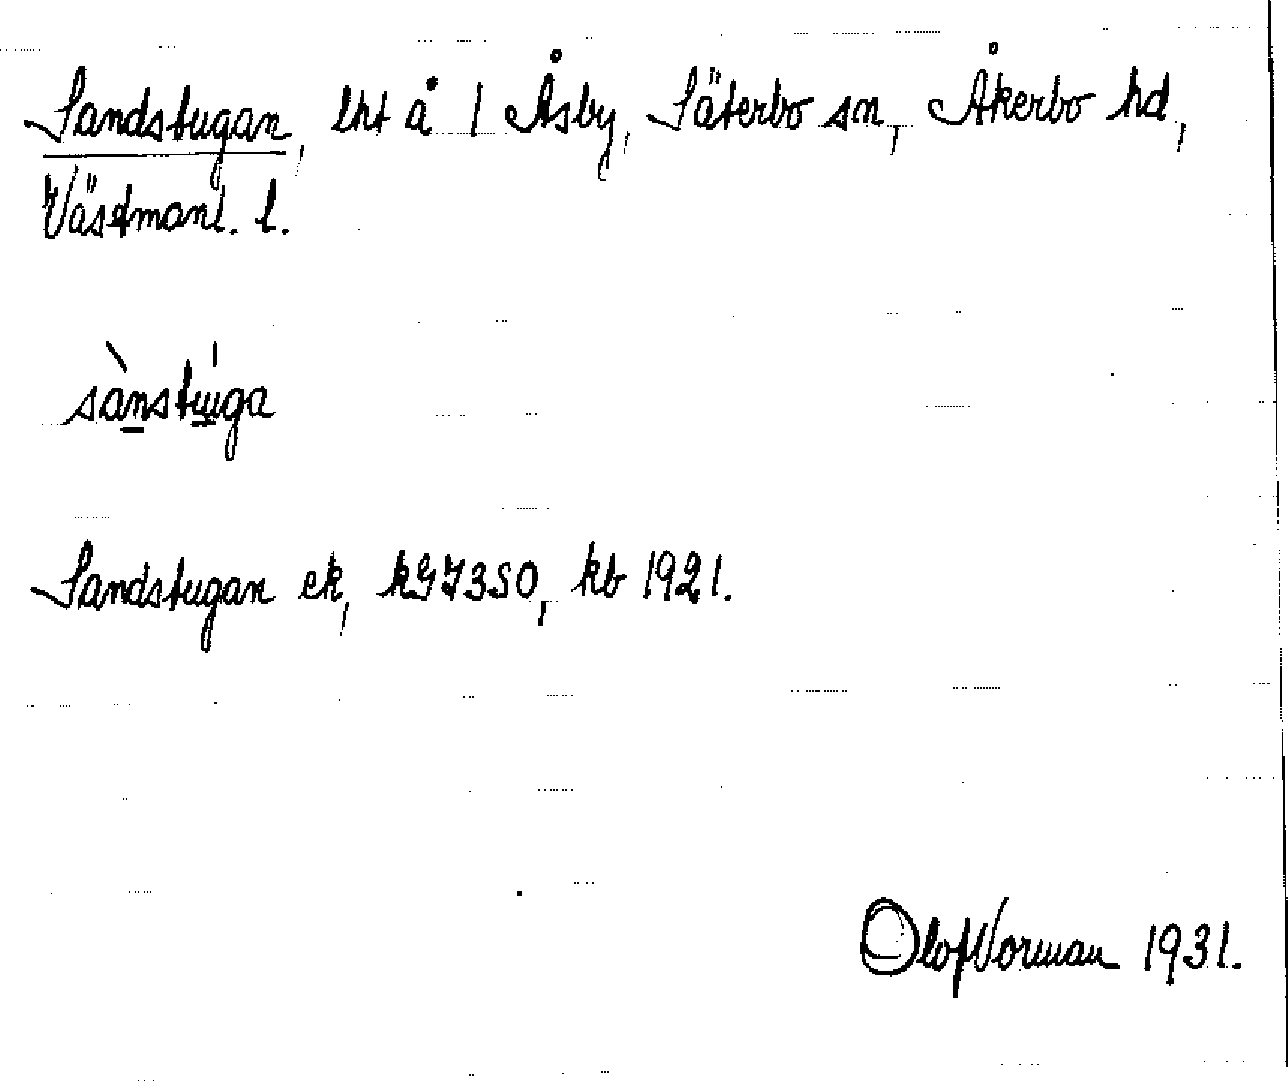 Sandstugan, lht å 1 Åsby, Säterbo sn, Åkerbo hd,
Västmanl. l.
sànstúga
Sandstugan ek, kGJ3SO, kb 1921.
Olof Norman 1931.